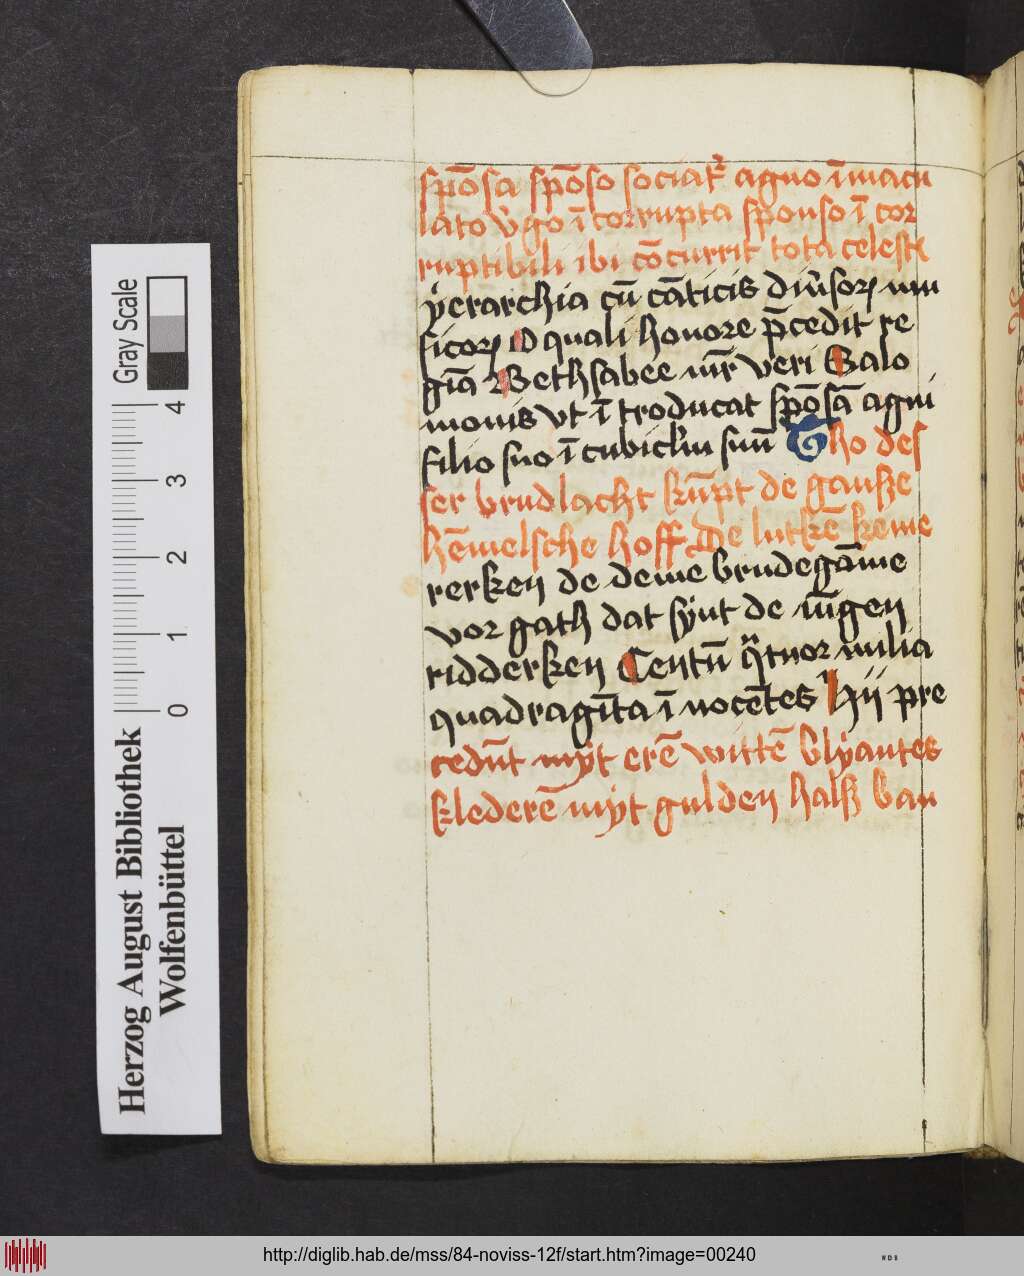 spōsa spōso sociat᷑ agno īmacu
lato v͛go ī corrupta sponso ī cor
ruptibili ibi cōcurrit tota celesti
yerarchia cū cāticis diu͛soꝝ mu
sicoꝝ O quali honore p̄cedit re
gīa Bethsabee mr̄ veri Salo
monis vt ī troducat spōsā agni
filio suo ī cubicl̓m suū Tho des
ser brudlacht kūpt de gantze
hēmelsche hoff De lutkē keme
rerken de deme brudegāme
vor gath dat synt de iūgen
ridderken Centū q̄tuor milia
quadragīta ī nocētes Hij pre
cedūt myt erē wittē blyantes
klederē myt gulden halsz ban
Gray Scale
4
3
2
1
0
Herzog August Bibliothek
Wolfenbüttel
http://diglib.hab.de/mss/84-noviss-12f/start.htm?image=00240